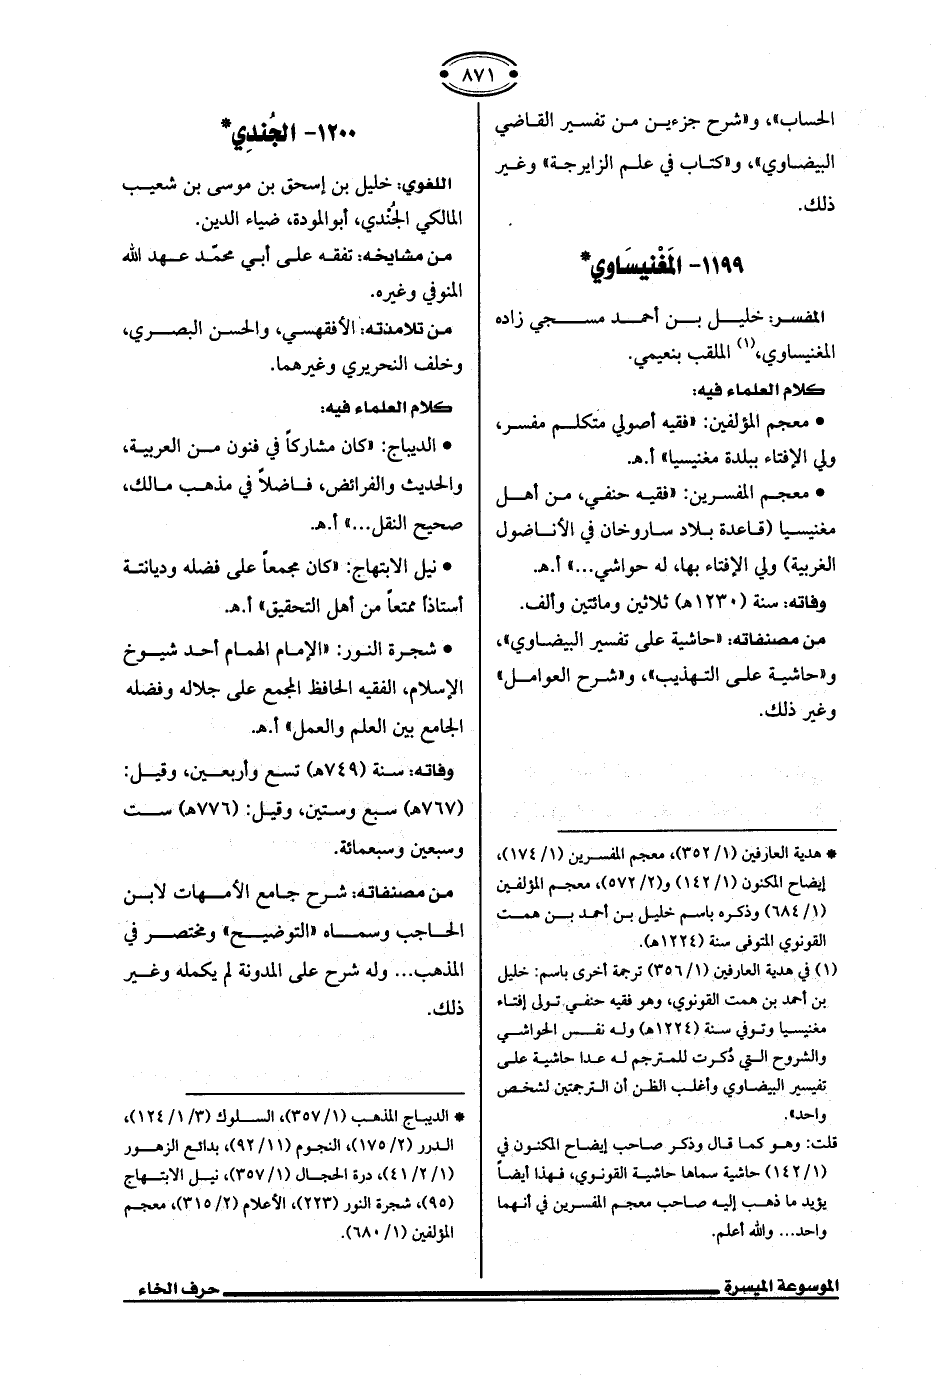 ٨٧١
الحساب»، و«شرح جزءين من تفسير القاضي
البيضاوي»، و«كتاب في علم الزايرجة» وغير
ذلك.
١١٩٩- المَغْنيسَاوي*
المفسر: خليل بن أحمد مسجي زاده
المغنيساوي،(١) الملقب بنعيمي.
كلام العلماء فيه:
• معجم المؤلفين: «فقيه أصولي متكلم مفسر،
ولي الإفتاء ببلدة مغنيسيا» أ.هـ.
• معجم المفسرين: «فقيه حنفي، من أهل
مغنيسيا (قاعدة بلاد ساروخان في الأناضول
الغربية) ولي الإفتاء بها، له حواشي...» أ.هـ.
وفاته: سنة (١٢٣٠هـ) ثلاثين ومائتين وألف.
من مصنفاته: «حاشية على تفسير البيضاوي»،
و«حاشية على التهذيب»، و«شرح العوامل»
وغير ذلك.
* هدية العارفين (١/ ٣٥٢)، معجم المفسرين (١/ ١٧٤)،
إيضاح المكنون (١/ ١٤٢) و(٢/ ٥٧٢)، معجم المؤلفين
(١/ ٦٨٤) وذكره باسم خليل بن أحمد بن همت
القونوي المتوفى سنة (١٢٢٤هـ).
(١) في هدية العارفين (١/ ٣٥٦) ترجمة أخرى باسم: خليل
بن أحمد بن همت القونوي، وهو فقيه حنفي تولى إفتاء
مغنيسيا وتوفي سنة (١٢٢٤هـ) وله نفس الحواشي
والشروح التي ذُكرت للمترجم له عدا حاشية على
تفيسير البيضاوي وأغلب الظن أن الترجمتين لشخص
واحد».
قلت: وهو كما قال وذكر صاحب إيضاح المكنون في
(١/ ١٤٢) حاشية سماها حاشية القونوي، فهذا أيضاً
يؤيد ما ذهب إليه صاحب معجم المفسرين في أنهما
واحد... والله أعلم.
١٢٠٠- الجُندي*
اللغوي: خليل بن إسحق بن موسى بن شعيب
المالكي الجُندي، أبوالمودة، ضياء الدين.
من مشايخه: تفقه على أبي محمّد عبهد الله
المنوفي وغيره.
من تلامذته: الأفقهسي، والحسن البصري،
وخلف النحريري وغيرهما.
كلام العلماء فيه:
• الديباج: «كان مشاركاً في فنون من العربية،
والحديث والفرائض، فاضلاً في مذهب مالك،
صحيح النقل...» أ.هـ.
• نيل الابتهاج: «كان مجمعاً على فضله وديانتة
أستاذاً ممتعاً من أهل التحقيق» أ.هـ.
• شجرة النور: «الإمام الهمام أحد شيوخ
الإسلام، الفقيه الحافظ المجمع على جلاله وفضله
الجامع بين العلم والعمل» أ.هـ.
وفاته: سنة (٧٤٩هـ) تسع وأربعين، وقيل:
(٧٦٧هـ) سبع وستين، وقيل: (٧٧٦هـ) ست
وسبعين وسبعمائة.
من مصنفاته: شرح جامع الأمهات لابن
الحاجب وسماه «التوضيح» ومختصر في
المذهب... وله شرح على المدونة لم يكمله وغير
ذلك.
* الديباج المذهب (١/ ٣٥٧)، السلوك (٣/ ١/ ١٢٤)،
الدرر (٢/ ١٧٥)، النجوم (١١/ ٩٢)، بدائع الزهور
(١/ ٢/ ٤١)، درة الحجال (١/ ٣٥٧)، نيل الابتهاج
(٩٥)، شجرة النور (٢٢٣)، الأعلام (٢/ ٣١٥)، معجم
المؤلفين (١/ ٦٨٠).
الموسوعة الميسرة حرف الخاء